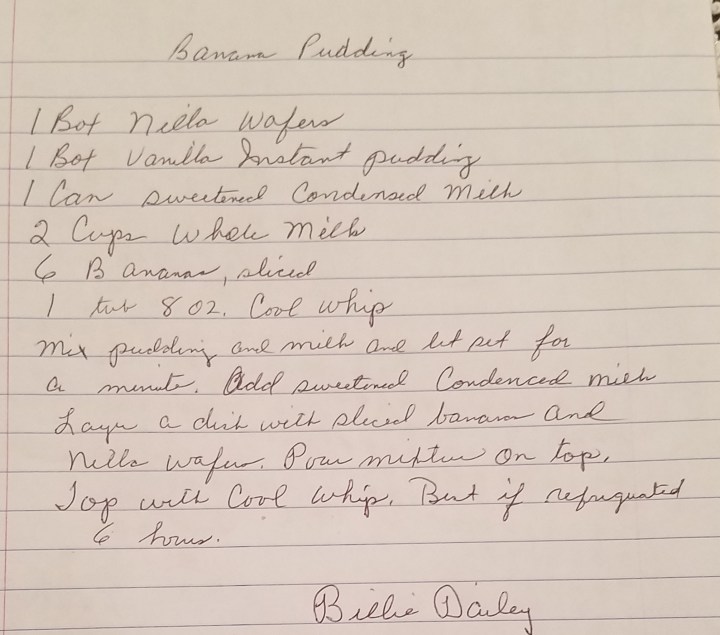 Banana Pudding
1 Box Nilla Wafers
1 Box Vanilla Instant pudding
1 Can sweetened Condensed Milk
2 Cups Whole Milk
6 Bananas, sliced
1 tub 8 oz. Cool whip
Mix pudding and milk and let set for
a minute. Add sweetened Condenced milk
Layer a dish with sliced banana and
Nilla wafers. Pour mixture on top.
Top with Cool Whip. Best if refrigerated
6 hours.
Billie Dailey